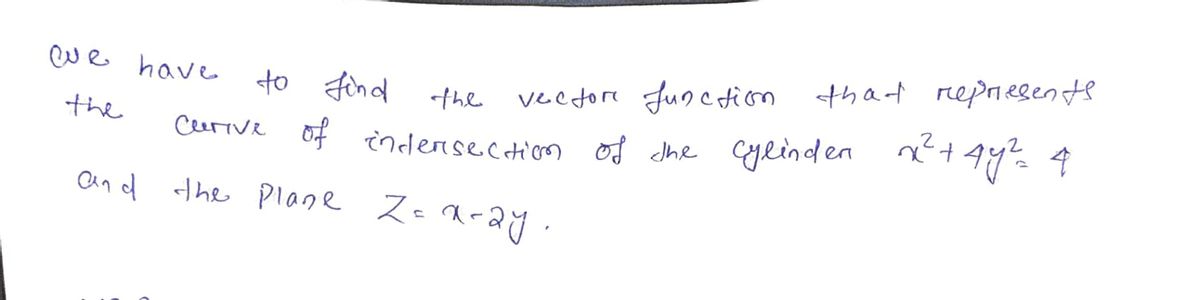 We have to find the vector function that represents
the curve of intersection of the cylinder x²+4y²=4
and the plane Z=x-2y.